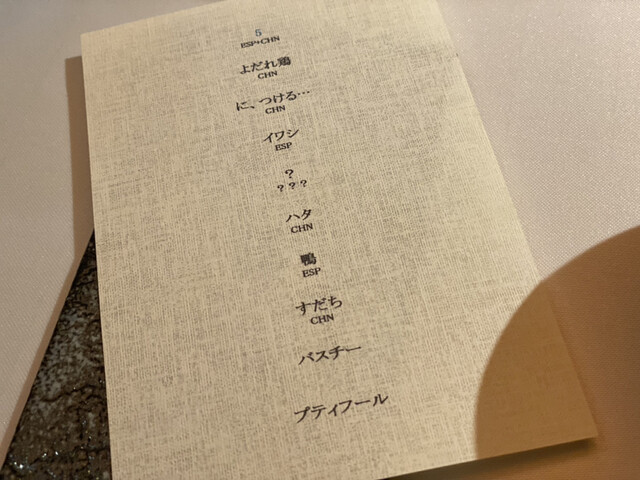 5
ESP・CHN
よだれ鶏
CHN
に、つける…
CHN
イワシ
ESP
?
???
ハタ
CHN
鴨
ESP
すだち
CHN
バスチー
プティフール